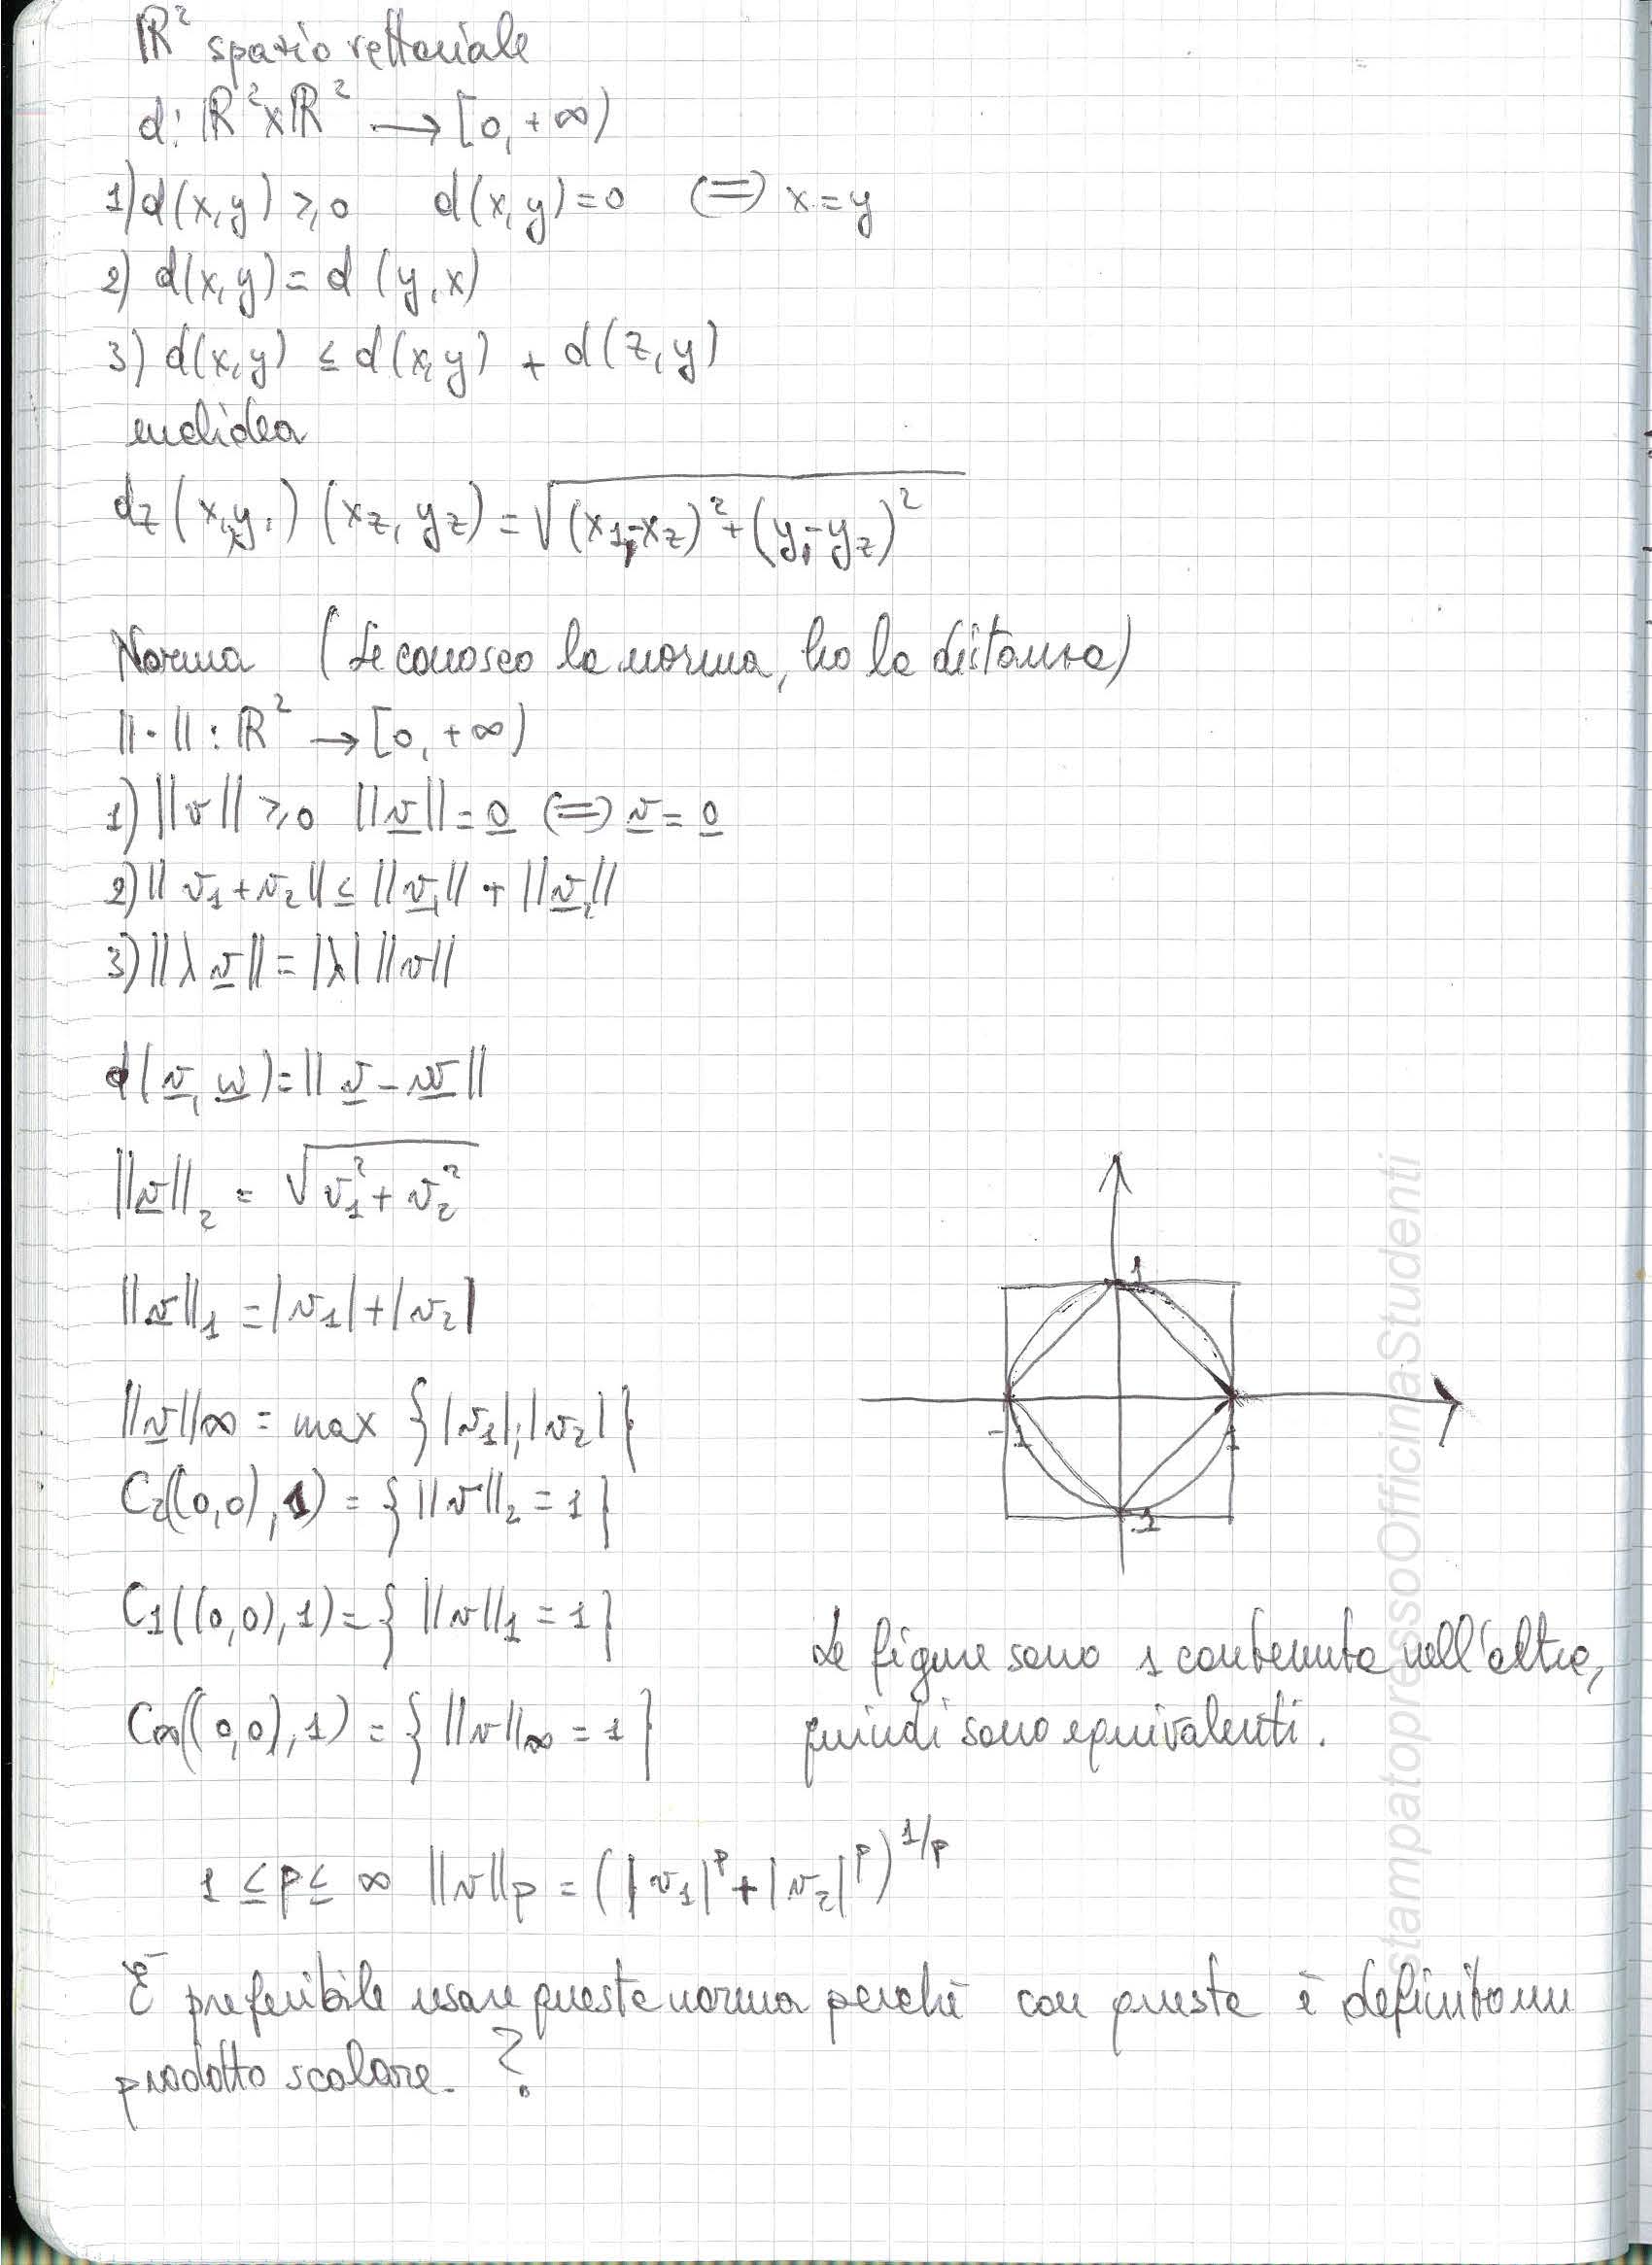 ℝ² spazio vettoriale
d: ℝ²×ℝ² → [0,+∞)
1) d(x,y) ≥ 0 d(x,y)=0 (=) x=y
2) d(x,y) = d(y,x)
3) d(x,y) ≤ d(x,y) + d(z,y)
euclidea
d₂(x₁,y₁) (x₂,y₂) = √(x₁-x₂)²+(y₁-y₂)²
Norma (Se conosco la norma, ho la distanza)
||·|| : ℝ² → [0,+∞)
1) ||v|| ≥ 0 ||v|| = 0 (=) v = 0
2) ||v₁+v₂|| ≤ ||v₁|| + ||v₁||
3) ||λv|| = |λ| ||v||
d(v,w) = ||v-w||
||v||₂ = √v₁²+v₂²
||v||₁ = |v₁|+|v₂|
||v||∞ = max {|v₁|;|v₂|}
C₂((0,0),1) = {||v||₂ = 1}
C₁((0,0),1) = {||v||₁ = 1}
C∞((0,0),1) = {||v||∞ = 1}
1
-1
1
-1
Le figure sono 1 contenuta nell'altra,
quindi sono equivalenti.
1 ≤ p ≤ ∞ ||v||p = (|v₁|^p+|v₂|^p)^1/p
È preferibile usare questa norma perchè con questa è definito un
prodotto scalare. ?
stampatopressoOfficinaStudenti